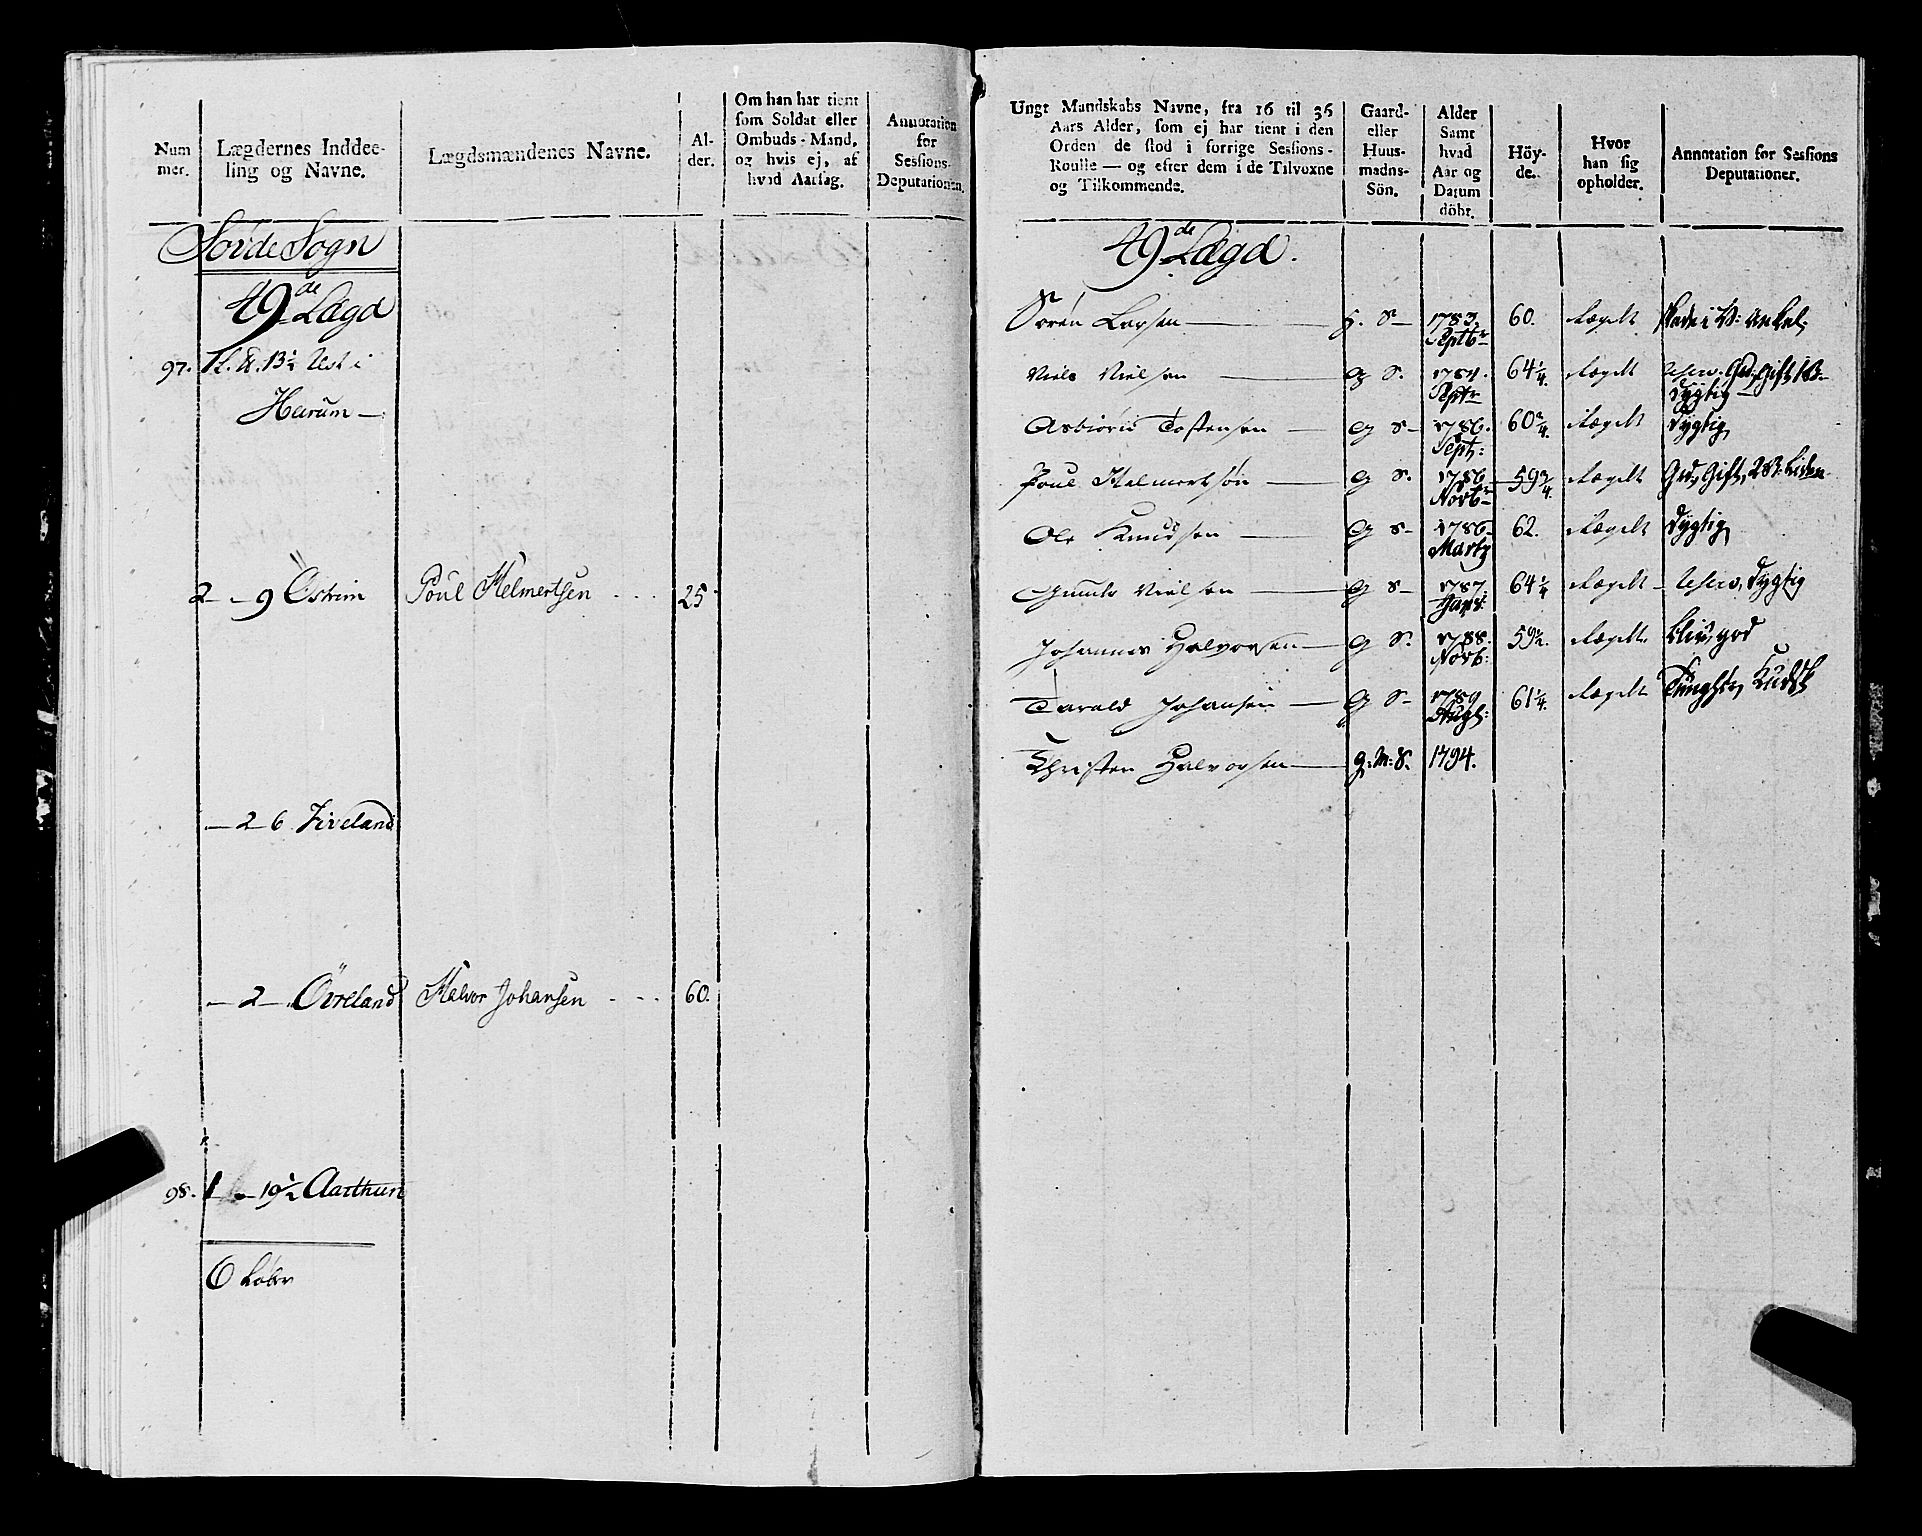 Num
mer.
Lægdernes Inddee-
ling og Navne.
Lægdsmændenes Navne.
Al-
der.
Om han har tient
som Soldat eller
Ombuds-Mand,
og hvis ej, af
hvad Aarsag.
Annotation
for
Sessions-
Deputationen.
Sørde Sogn
49de Lægd
97.
13½
Haaum
2 - 9 Østrim Poul Helmertsen 25
- 2 6 Fiveland
- 2 - Øvreland Halvor Johansen 60.
98. 1 - 19½ Aasthun
6
Ungt Mandskabs Navne, fra 16 til 36
Aars Alder, som ej har tient i den
Orden de stod i forrige Sessions-
Roulle — og efter dem i de Tilvoxne
og Tilkommende.
Gaard-
eller
Huus-
madns-
Sön.
Alder
Samt
hvad
Aar og
Datum
döbt.
Höy-
de.
Hvor
han sig
opholder.
Annotation for Sessions
Deputationer.
49de Lægd.
Søren Larsen H. S 1783. Septbr 60. Lægdt
Niels Nielsen G S. 1784. Septr 64¼. Lægdt Gift
Dygtig
Asbiørn Tostensen G S 1786. Sept: 60¾. Lægdt Dygtig
Poul Helmertsøn G S. 1786 Novbr 59¾. Lægdt Gift
Ole Knudsen G S 1786 Marty 62. Lægdt Dygtig
Gunder Nielsen G S 1787. Janr: 64¼ Lægdt Dygtig
Johannes Halvorsen G S. 1788. Novb: 59½. Lægdt god
Tarald Johansen G S 1789 Augt: 61¼. Lægdt Kudsk
Christen Halvorsen G: M: S. 1794.